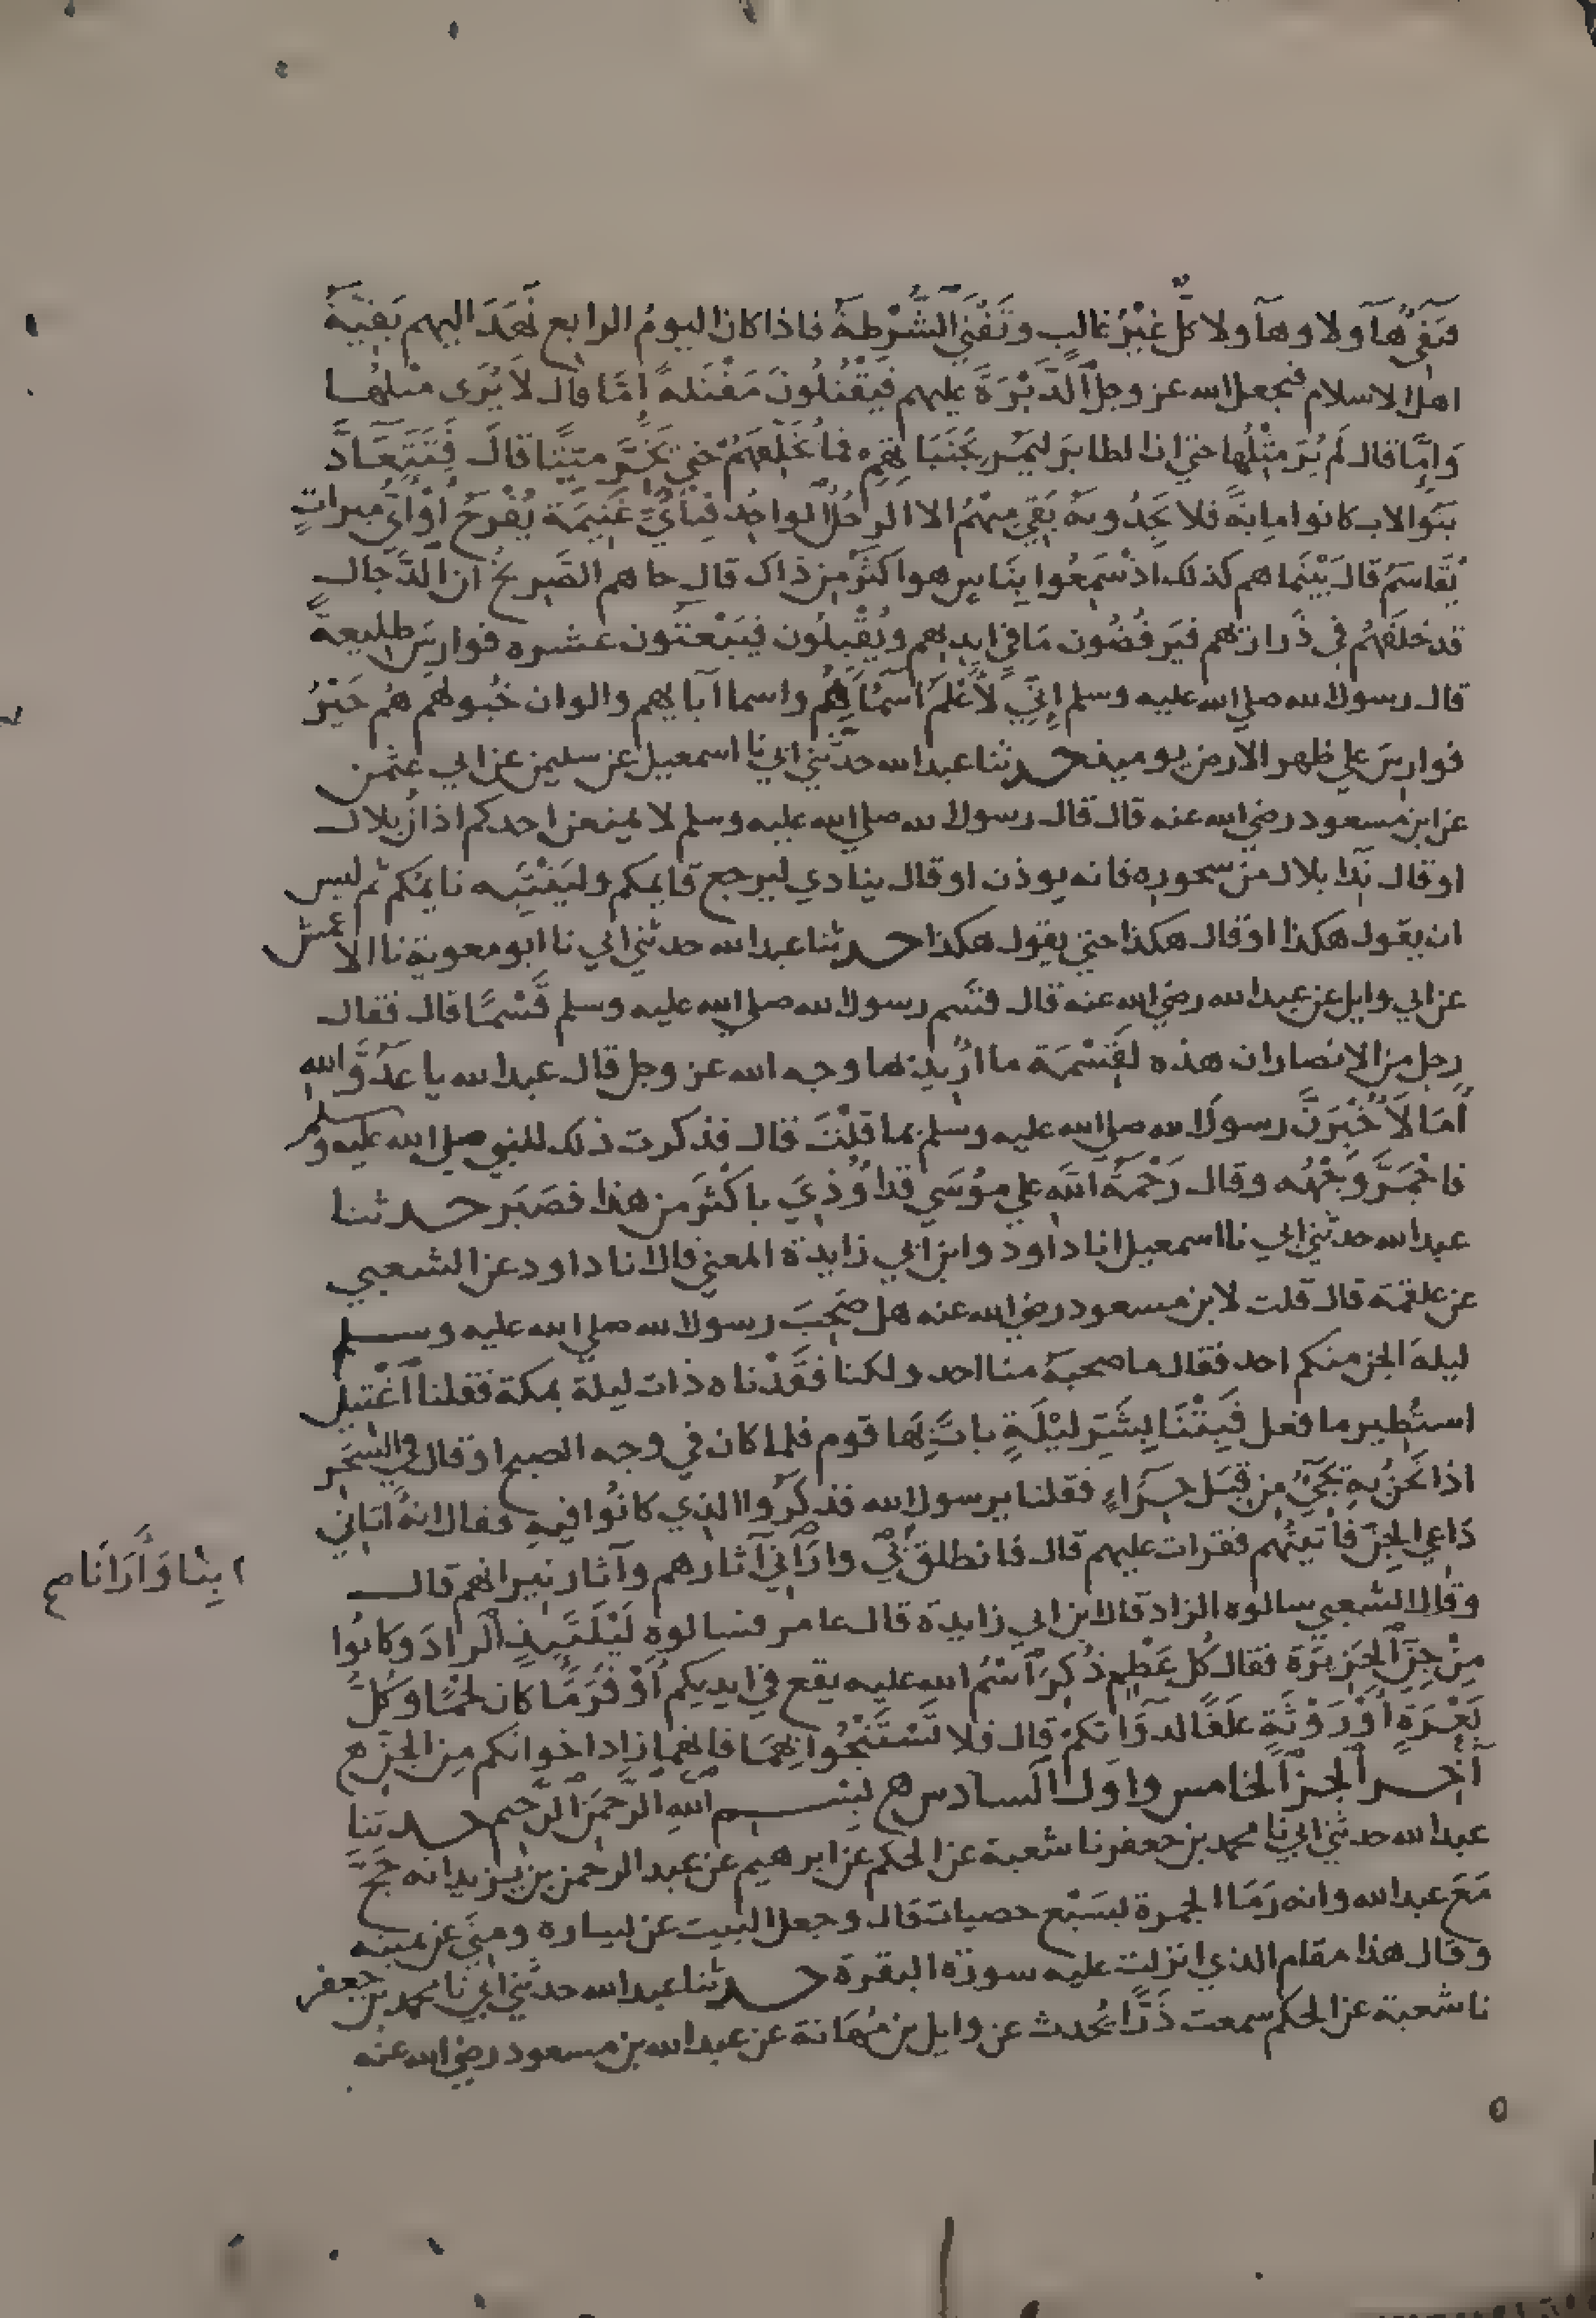 فيفي هآولا وهآولا كلٌّ غيْرُ غالب وتَفْنَى الشُّرْطةُ فاذا كان اليومُ الرابع نَهَدَ اليهم بَقيّةُ
اهل الاسلام فيجعل الله عز وجل الدَّبْرَةَ عليهم فيَقْتُلُونَ مَقْتَلةً إمّا قال لا يُرَى مثلها
وَإمّا قال لَم يُرَ مثْلُها حتى ان الطايرَ ليَمُر بِجَنَبَاتِهِم فما يُخَلِّفهُمْ حتى يَخِرَّ ميّتًا قالَ فَيَتَعَادَّ
بَنُو الاب كانوا مِايةً فلا يَجِدُونهُ بَقي مِنْهُمْ الا الرجُلُ الواحِدُ فبِأيّ غَنِيمَة يُفْرَحُ أوْ أيُّ ميراثٍ
يُقَاسَمُ قال بَيْنَما هم كذلك اذ سَمِعُوا بِنَاسٍ هو اكثَرُ مِن ذاك قال جاهم الصَّرِيخُ ان الدَّجال
قد خلَفَهُمْ في ذَراريهم فيَرفُضُون مَا في ايديهم ويُقْبِلُون فيَبْعَثُون عشره فوارسَ طليعةً
قال رسول الله صلى الله عليه وسلم إنّي لأعْلَمُ اسمَاءَهُمْ واسما آبايهم والوان خُيولهم هُم خَيْرُ
فوارسَ على ظهر الارض يوميذ حدثنا عبد الله حدّثني ابي نا اسمعيل عن سليمن عن ابي عثمن
عن ابن مسعود رضي الله عنه قال قال رسول الله صلى الله عليه وسلم لا يمنعن احدكم اذان بلال
او قال نِدَا بلال من سحوره فانه يوذن او قال ينادي ليرجع قايمكم وليَنْتَبِه نايمُكم ثم ليس
ان يقول هكذا او قال هكذا حتى يقول هكذا حدثنا عبد الله حدثني ابي نا ابو معوية نا الاعمش
عن ابي وايل عن عبد الله رضي الله عنه قال قسَم رسول الله صلى الله عليه وسلم قَسْمًا قال فقال
رجل من الانصار ان هذه لقِسْمَة ما اُرِيدَ بها وجه الله عز وجل قال عبد الله يا عَدُوَّ الله
أمَا لأُخْبِرَنَّ رسول الله صلى الله عليه وسلم بما قلْتَ قال فذكرت ذلك للنبي صلى الله عليه وسلم
فاحْمَرَّ وَجْهُه وقال رَحْمَةُ الله على مُوسَى قد اُوذِيَ باكْثَرَ مِن هذا فصَبَر حدثنا
عبد الله حدثني ابي نا اسمعيل انا داود وابن ابي زايدة المعنى قالا نا داود عن الشعبي
عن علقمة قال قلت لابن مسعود رضي الله عنه هل صَحِبَ رسول الله صلى الله عليه وسلم
ليلة الجن منكم احد فقال ما صحبهُ منا احد ولكنا فَقَدْناه ذات ليلة بمكة فقلنا اُغْتيل
استُطير ما فعل فَبِتْنَا بِشَرِّ ليْلَةٍ باتَ بِها قوم فلما كان في وجه الصبح او قال في السَّحَر
اذا نَحْنُ بهِ يَجيُ مِن قِبَل حِرَاءٍ فقلنا يرسول الله فذكَرُوا الذي كانُوا فيه فقال انهُ اتَاني
دَاعي الجِنّ فأتيتُهُم فقرات عليهم قال فانطلقَ بي وارَاني آثارهم وآثار نيرانهم قال
ابِنَا وَأرَانَا صح
وقال الشعبي سالوه الزاد قال ابن ابي زايدة قال عامر فسالوهُ لَيْلَتَيِذٍ الزادَ وكانُوا
مِنْ جِنّ الجَزِيرَة فقال كُلّ عَظْمٍ ذُكِرَ اسْمُ الله عليه يقع في ايديكم اوْفَرَ مَا كان لَحْمًا وكُلُّ
بَعْرَةٍ اوْ رَوْثَةٍ علَفًا لدوَابّكمْ قال فلا تَسْتَنْجُوا بِهِمَا فانهُما زاد اخوانكم مِن الجنّ هـ
آخر الجزء الخامس واوّل السادس هـ بسم الله الرحمن الرحيم حدثنا
عبد الله حدثني ابي نا محمد بن جعفر نا شعبة عن الحكم عن ابرهيم عن عبد الرحمن بن يزيد انه حَجّ
مَعَ عبد الله وانه رَمَا الجمرة بسَبْع حصيات قال وجعل البيت عن يساره ومِنًى عن يمينه
وقال هذا مقام الذي انزلت عليه سورة البقرة حدثنا عبد الله حدثني ابي نا محمد بن جعفر
نا شعبة عن الحكم سمعت ذَرًّا يُحدث عن وايل بن مُهَانة عن عبد الله بن مسعود رضي الله عنه